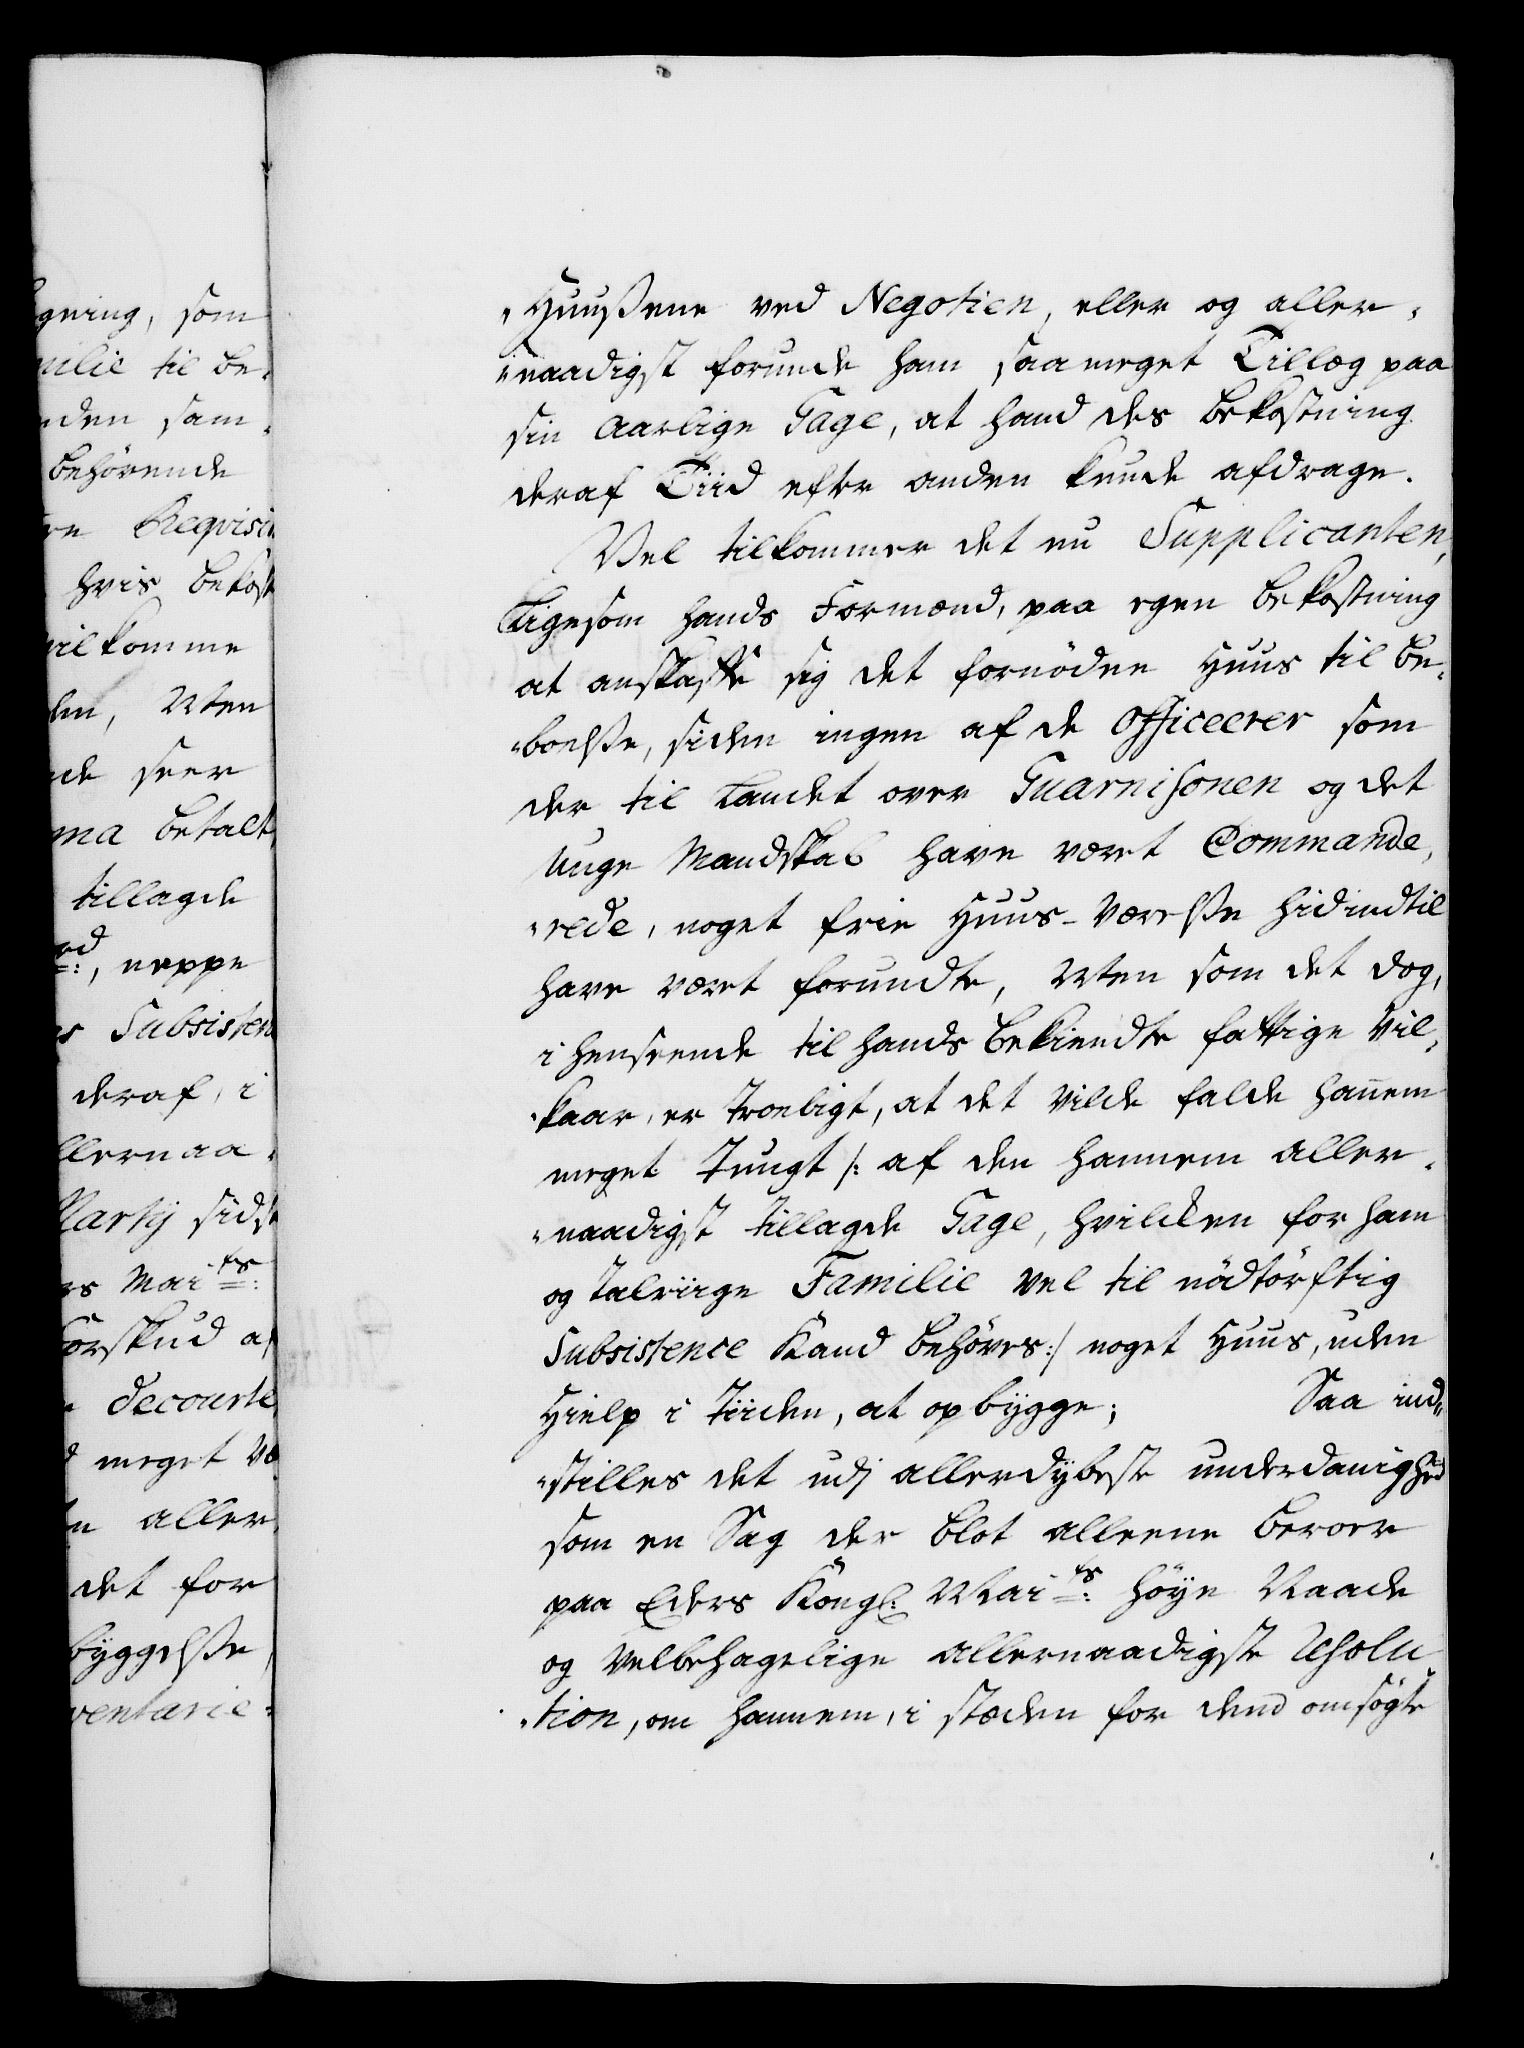 gning, som
milie til be-
nden sam-
behörende
re Reqvisi
hvis bekost
vilkomme
den, Uten
de seer
ma betalt
tillagde
rd:, neppe
s Subsisten
deraf, i
llernaa-
Marty sidst
rs Mai ts:
Forskud a
decourte
meget Væ
n aller
det for
byggelsse
ventarie-
"Huussene ved Negotien, eller og aller-
"naadigst forunde ham saa meget Tillæg paa
sin aarlige Gage, at hand des bekostning
deraf Tiid efter anden kunde afdrage.
Vel tilkommer det nu Supplicanten,
Ligesom hands Formænd, paa egen bekostning
at anskaffe sig det fornödne Huus til be-
"boelsse, siden ingen af de Officeerer som
der til Landet over Guarnisonen og det
unge Mandskab have været Commande-
"rede, noget frie Huus-Værelsse hidindtil
have været forundte, Uten som det dog,
i henseende til hands bekiendte fattige Vil-
"kaar, er Troeligt, at det Vilde falde hannem
meget Tungt /: af den hannem aller-
"naadigst tillagde Gage, hvilcken for ham
og Talriige Familie vel til nödtörftig
Subsistence Kand behöves :/ noget Huus, uden
Hielp i Tiiden, at opbygge; Saa ind-
"stilles det udj allerdybeste underdanighed
som en Sag der blot alleene beroer
paa Eders Kongl: Mai ts: höye Naade
og Velbehagelige allernaadigste Resolu
"tion, om hannem, i stæden for dend omsögte